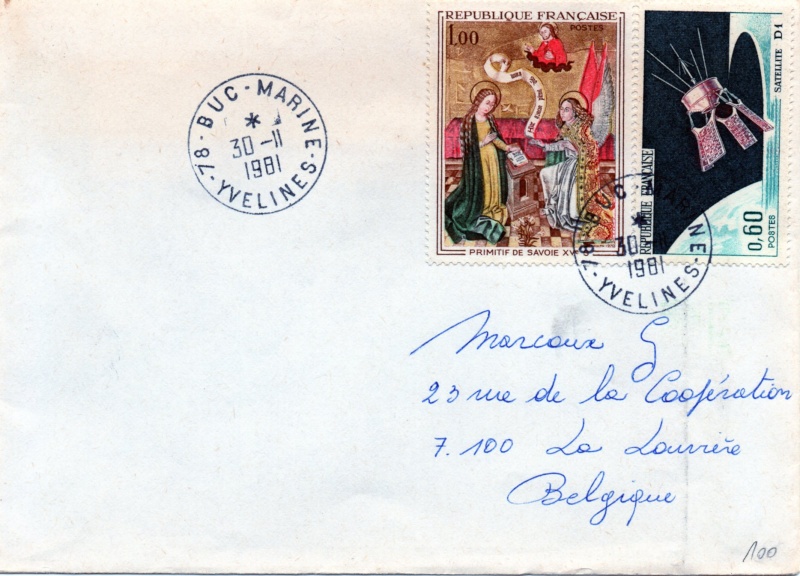 BUC-MARINE
*
30-11
1981
78-YVELINES-
REPUBLIQUE FRANÇAISE
1,00
POSTES
PRIMITIF DE SAVOIE XV
SATELLITE D1
REPUBLIQUE FRANÇAISE
0,60
POSTES
BUC-MARINE
*
30-11
1981
78-YVELINES-
Marcoux G
23 rue de la Coopération
7.100 La Louvière
Belgique
100